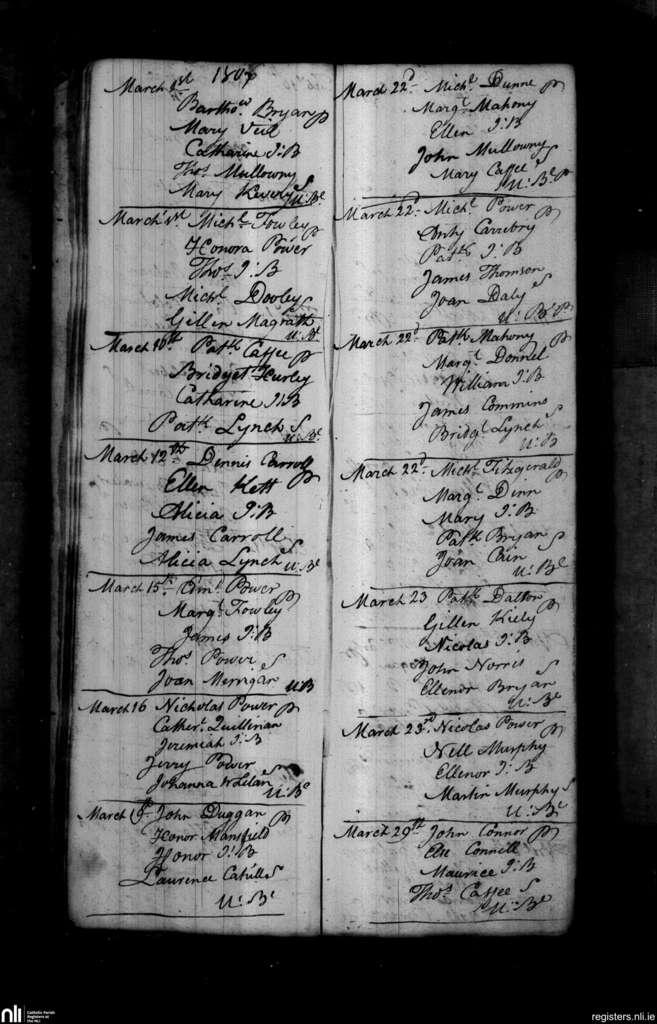 March 1st 1807
Bartho.w Bryan P
Mary Veil
Catharine I:B
Tho.s Mullowny
Mary Keverly S
U:B.e
March 1st Mich.l Fowley P
Honora Power
Tho.s I:B
Mich.l Dooley S
Gillen Magrath
U:B.e
March 10th Pat.k Caffee P
Bridget Hurley
Catharine I:B
Pat.k Lynch S
U:B.e
March 12th Dennis Carroll P
Ellen Kett
Alicia I:B
James Carroll
Alicia Lynch S
U:B.e
March 15th Edm.d Power P
Marg.t Fowley
James I:B
Tho.s Power S
Joan Merrigan
UB
March 16 Nicholas Power P
Cather.e Quillinan
Jeremiah I:B
Jerry Power
Johanna Whelan S
U:B.e
March John Duggan P
Honor Mansfield
Honor I:B
Laurence Cahill S
U:B.e
March 22d Mich.l Dunne P
Marg.t Mahony
Ellen I:B
John Mullowny
Mary Caffee S
U:B.e P
March 22d Mich.l Power P
Pat.k I:B
James Thomson
Joan Daly S
U:B.e P
March 22d Pat.k Mahony P
Marg.t Donnel
William I:B
James Commins
Bridg.t Lynch S
U:B
March 22d Mich.l Fitzgerald P
Marg.t Dinn
Mary I:B
Pat.k Bryan S
Joan Cain
U:B.e
March 23 Pat.k Dalton P
Gillen Kiely
Nicolas I:B
John Norris
Ellenor Bryan S
U:B.e
March 23d Nicolas Power P
Nell Murphy
Ellenor I:B
Martin Murphy S
U:B.e
March 29th John Connor P
Connell
Maurice I:B
Tho.s Caffee S
U:B.e
nli
Catholic Parish
Registers at
the NLI
registers.nli.ie